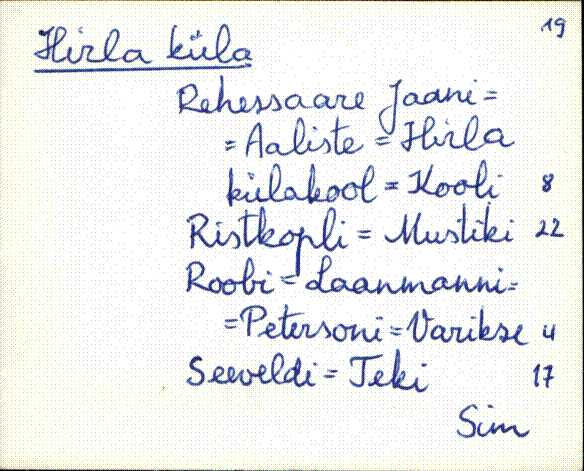 19
Hirla küla
Rehessaare Jaani =
= Aaliste = Hirla
külakool = Kooli 8
Ristkopli = Mustiki 22
Roobi = Laanmanni =
= Petersoni = Varikse 4
Seeveldi = Teki 17
Sim